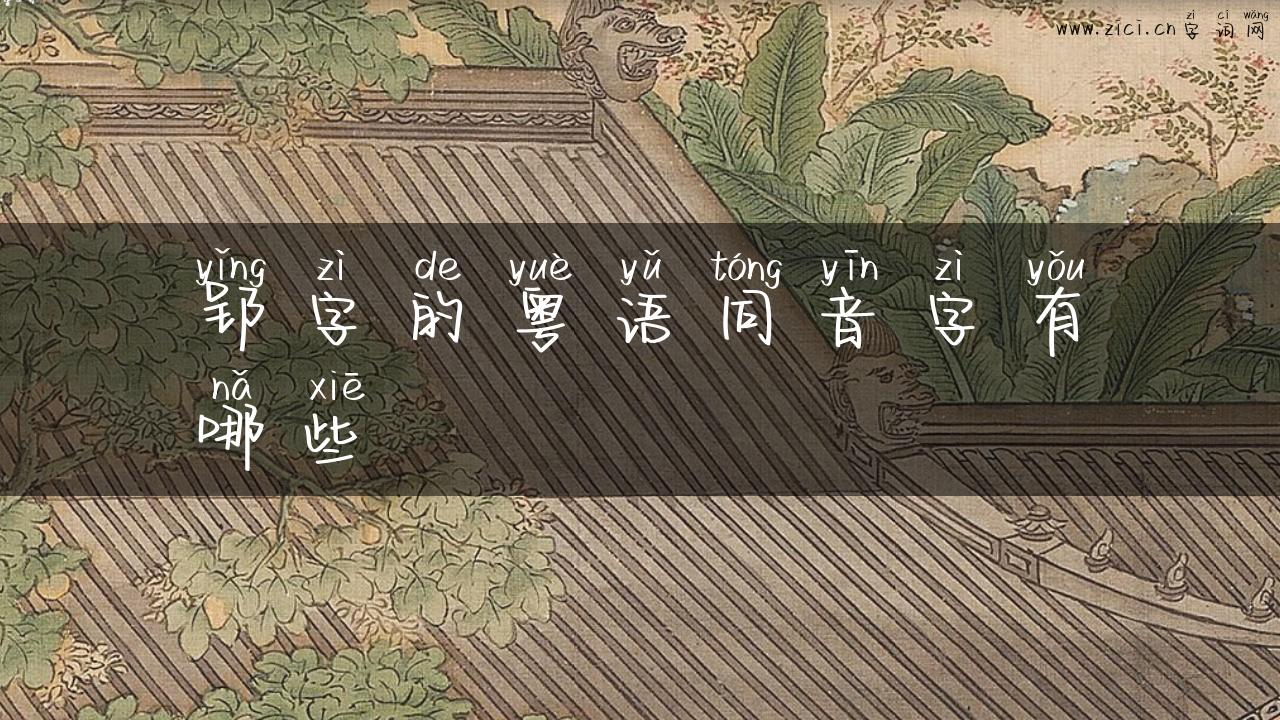 zì cí wǎng
www.zici.cn 字词网
yǐng zì de yuè yǔ tóng yīn zì yǒu
郢字的粤语同音字有
nǎ xiē
哪些